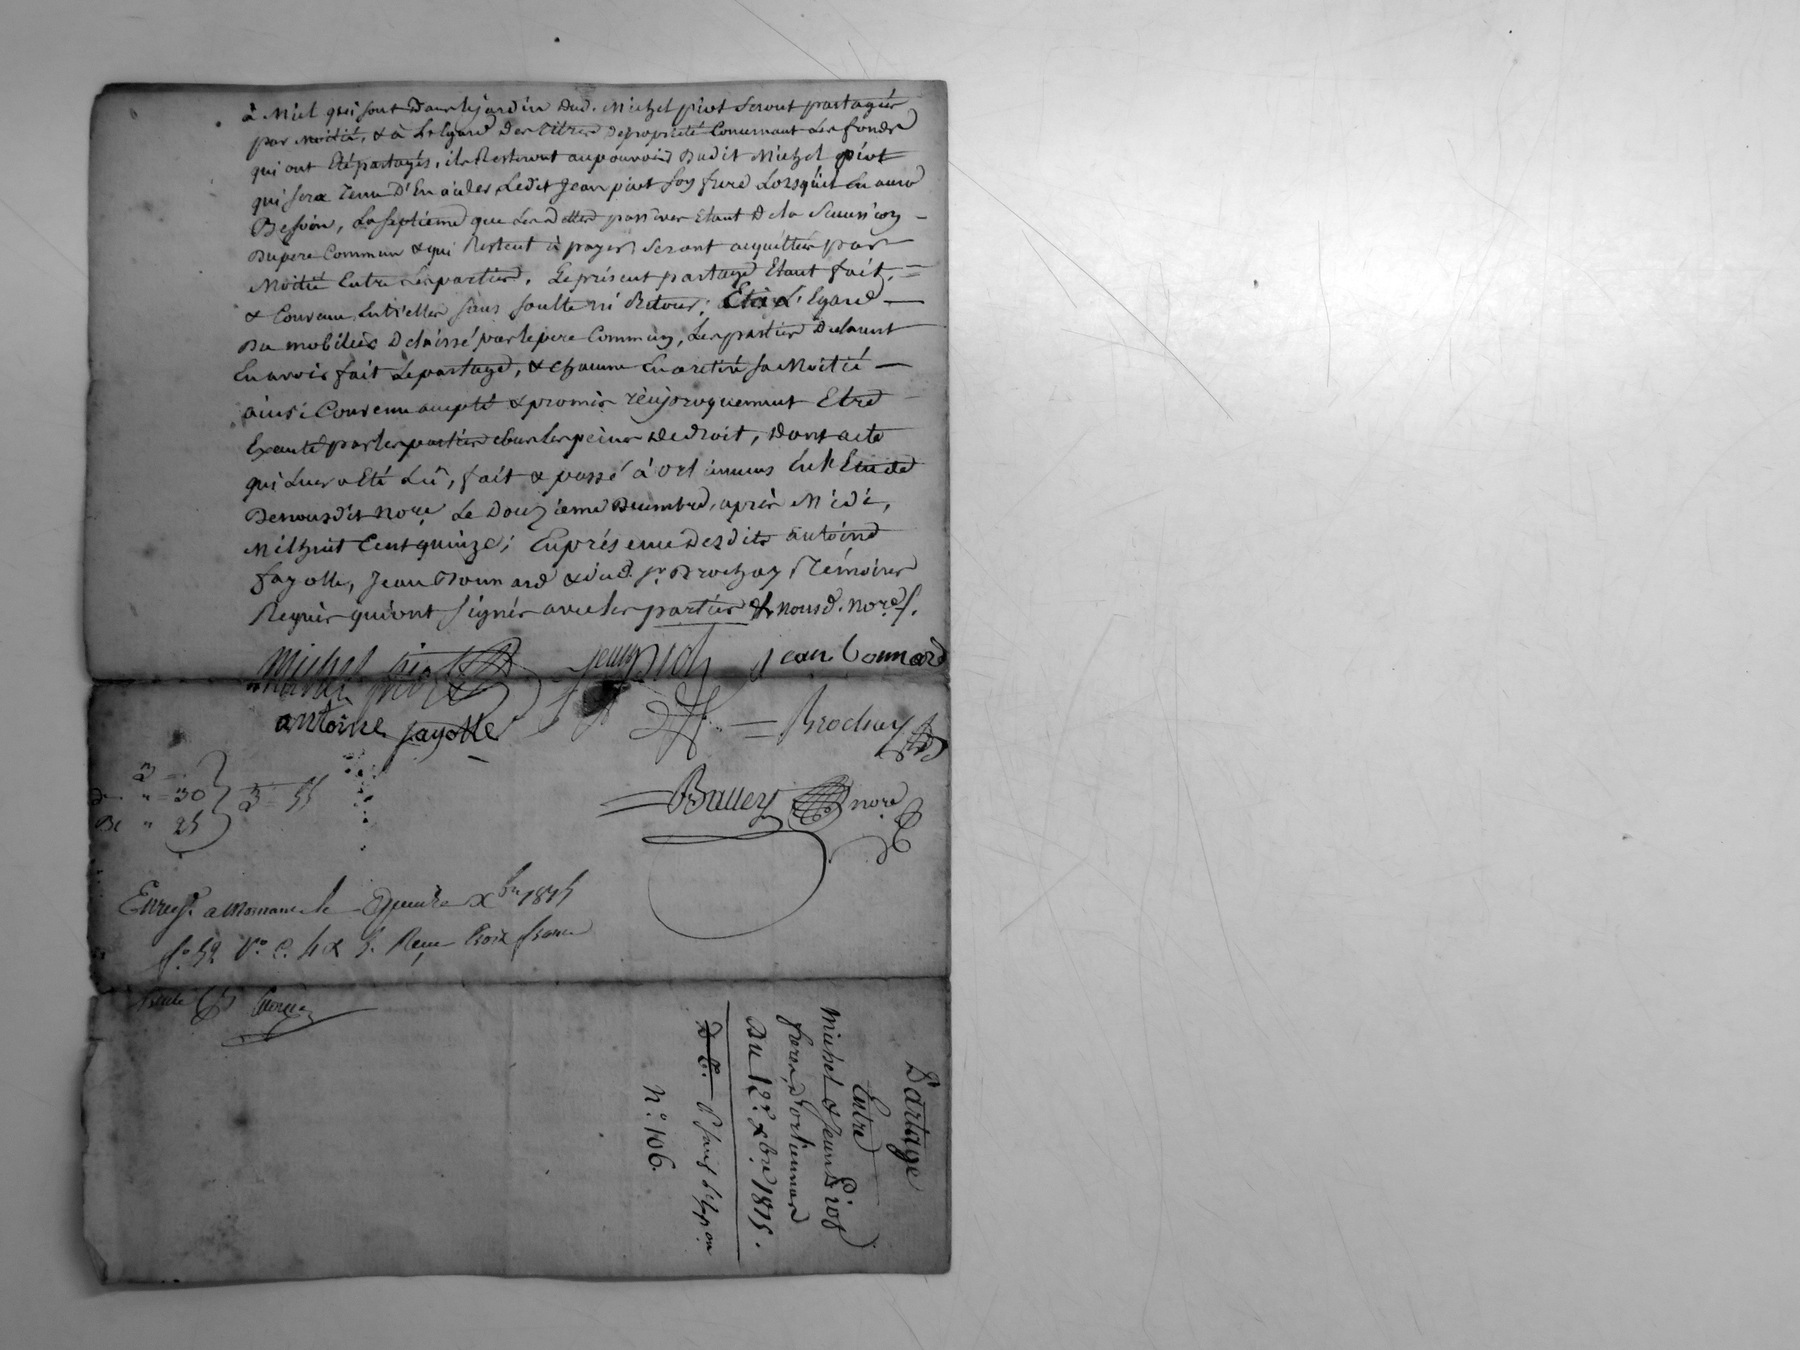 à Miel qui sont Dans le jardin Dud. Michel piot Seront partagés
par Moitié, & à L'Egard Des titres De propriété Concernant Les fonds
qui ont Eté partagés, ils Resteront au pouvoir Dudit Michel piot
qui sera Tenu D'En aider Ledit Jean piot son frere Lorsqu'il En aura
Besoin, La Septieme que Les Dettes passives Etant De la Succession
Du pere Commun & qui Restent à payer seront acquittées par
Moitié Entre Les parties. Le présent partage Etant fait,
& Convenu Entr'elles sans soulte ni Retour; Et à L'Egard
Du mobilier Delaissé par le pere Commun, Les parties Declarent
En avoir fait Le partage, & chacune En a retiré sa Moitié
ainsi Convenu accepté & promis réciproquement Etre
Executé par les parties sous les peines De droit, Dont acte
qui Leur a Eté Lû, fait & passé à En L'Etude
De nousdit nore. Le Douzieme Decembre, après Midi,
Mil huit Cent quinze; En présence Desdits antoine
fayolle, Jean Bonnard & dud. Sr. Brochay Témoins
Requis qui ont signés avec les parties & nousd. nore.
Michel piot Jean piot Jean bonnard
antoine fayolle Brochay
nore.
3
30 3 = 55
25
Enregt. a Romans le Xbre 1815
fo. 52 Vo. C. 4 & 5. Reçu
Partage
Entre
Michel & Jean Piot
freres,
Du 12e. Xbre 1815.
No. 106.